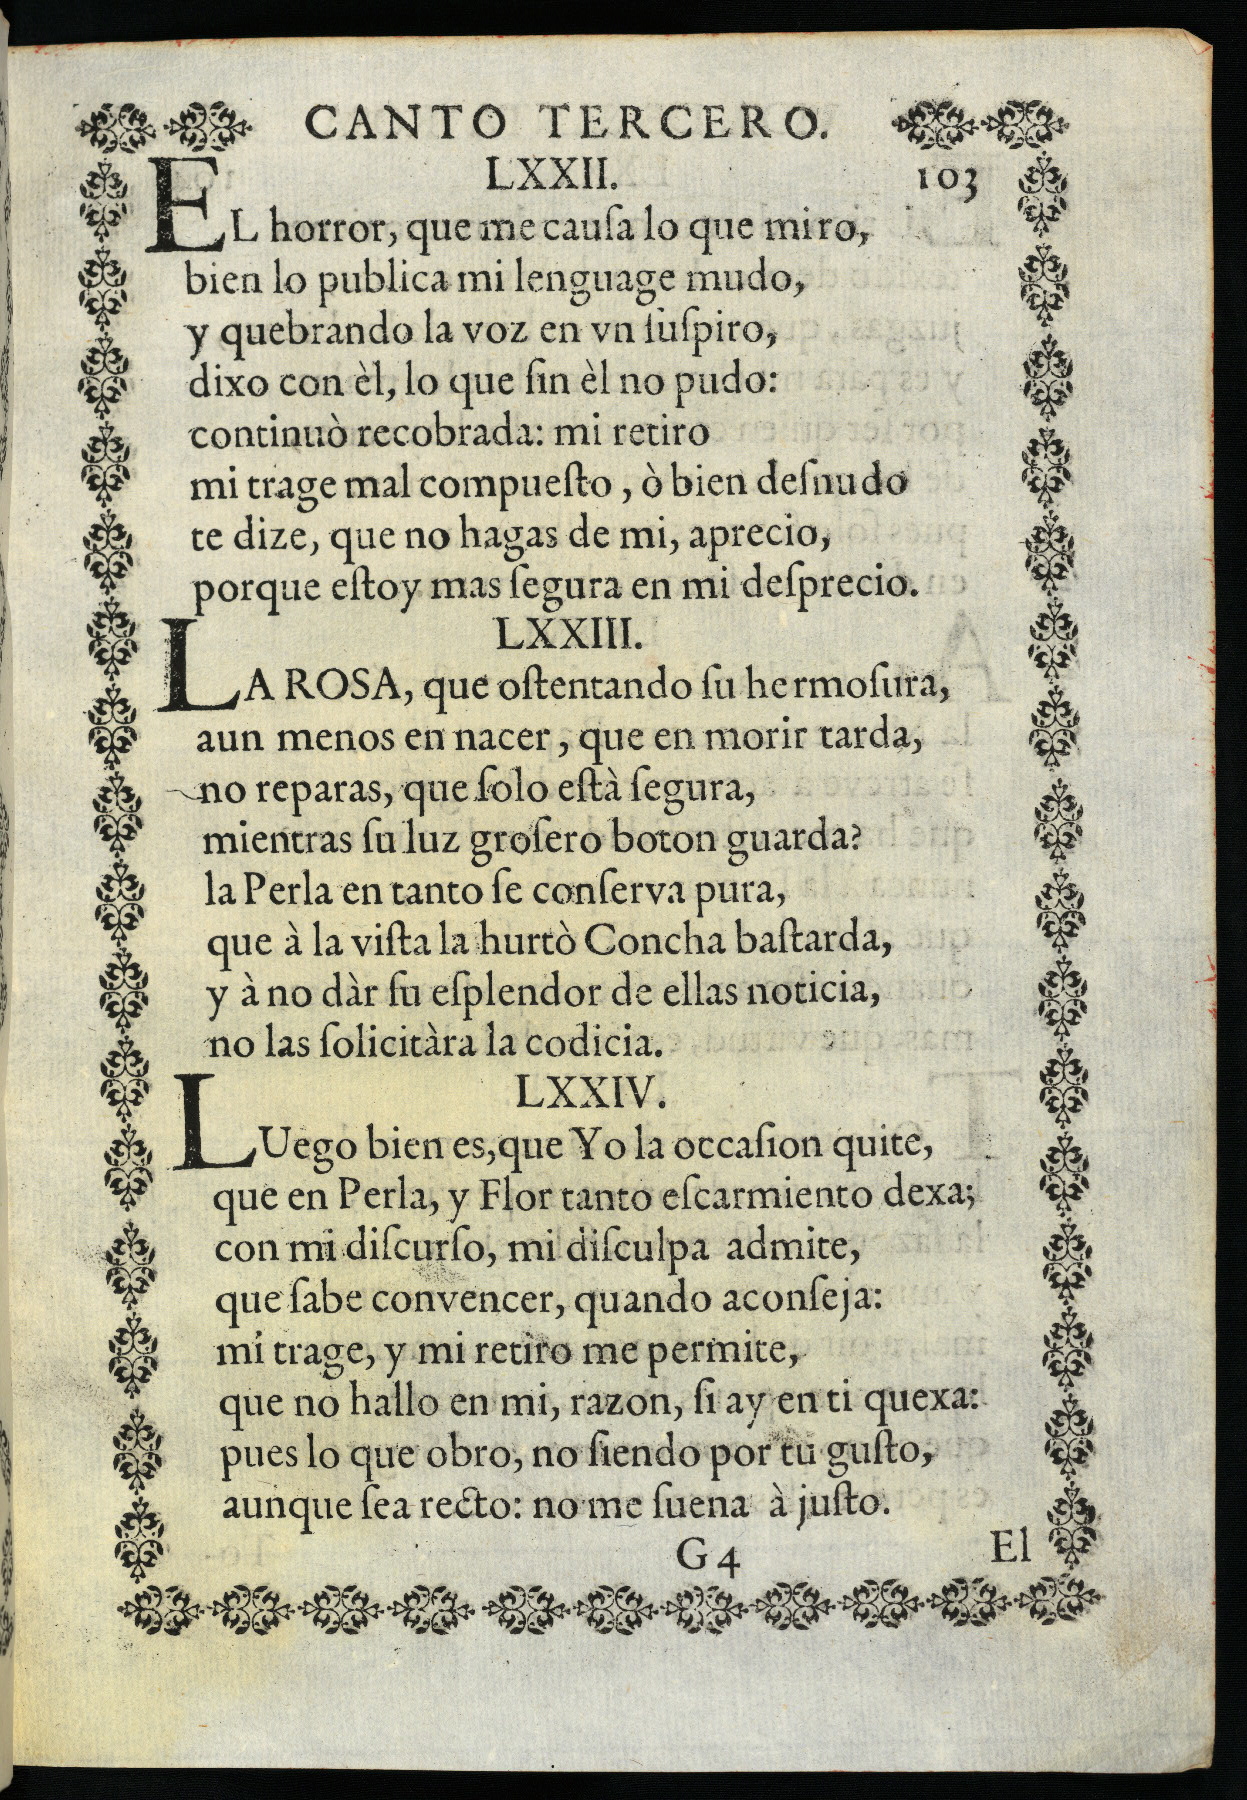 CANTO TERCERO.
LXXII. 103
EL horror, que me cauſa lo que miro,
bien lo publica mi lenguage mudo,
y quebrando la voz en vn ſuſpiro,
dixo con èl, lo que ſin èl no pudo:
continuò recobrada: mi retiro
mi trage mal compueſto, ò bien deſnudo
te dize, que no hagas de mi, aprecio,
porque eſtoy mas ſegura en mi deſprecio.
LXXIII.
LA ROSA, que oſtentando ſu hermoſura,
aun menos en nacer, que en morir tarda,
no reparas, que ſolo eſtà ſegura,
mientras ſu luz groſero boton guarda?
la Perla en tanto ſe conſerva pura,
que à la viſta la hurtò Concha baſtarda,
y à no dàr ſu eſplendor de ellas noticia,
no las ſolicitàra la codicia.
LXXIV.
LUego bien es, que Yo la occaſion quite,
que en Perla, y Flor tanto eſcarmiento dexa;
con mi diſcurſo, mi diſculpa admite,
que ſabe convencer, quando aconſeja:
mi trage, y mi retiro me permite,
que no hallo en mi, razon, ſi ay en ti quexa:
pues lo que obro, no ſiendo por tu guſto,
aunque ſea recto: no me ſuena à juſto.
G 4 El